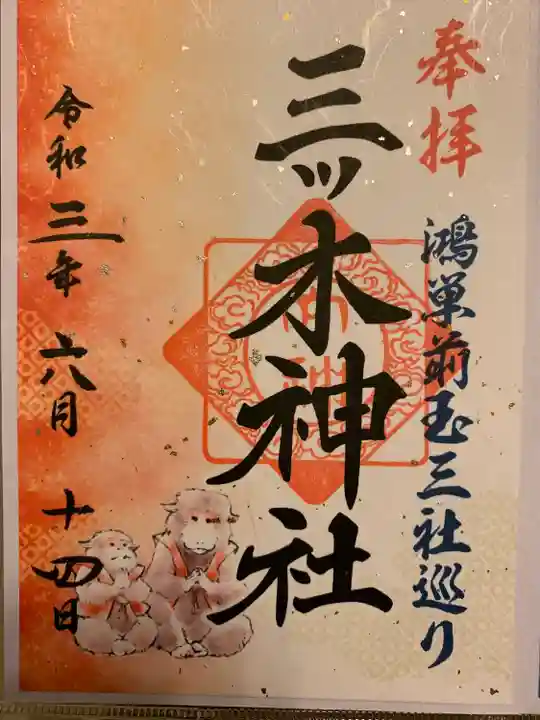 奉拝
鴻巣前玉三社巡り
三ッ木神社
令和三年六月十四日